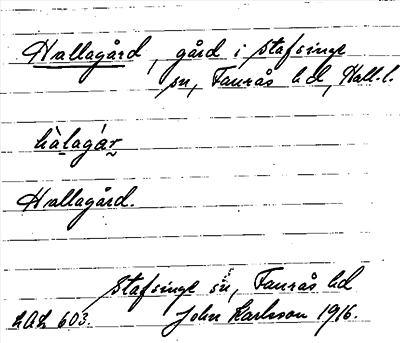 Hallagård, gård i Stafsinge
sn, Faurås hd, Hall. l.
hàlagár
Hallagård.
Stafsinge sn, Faurås hd
LAL 603. John Karlsson 1916.